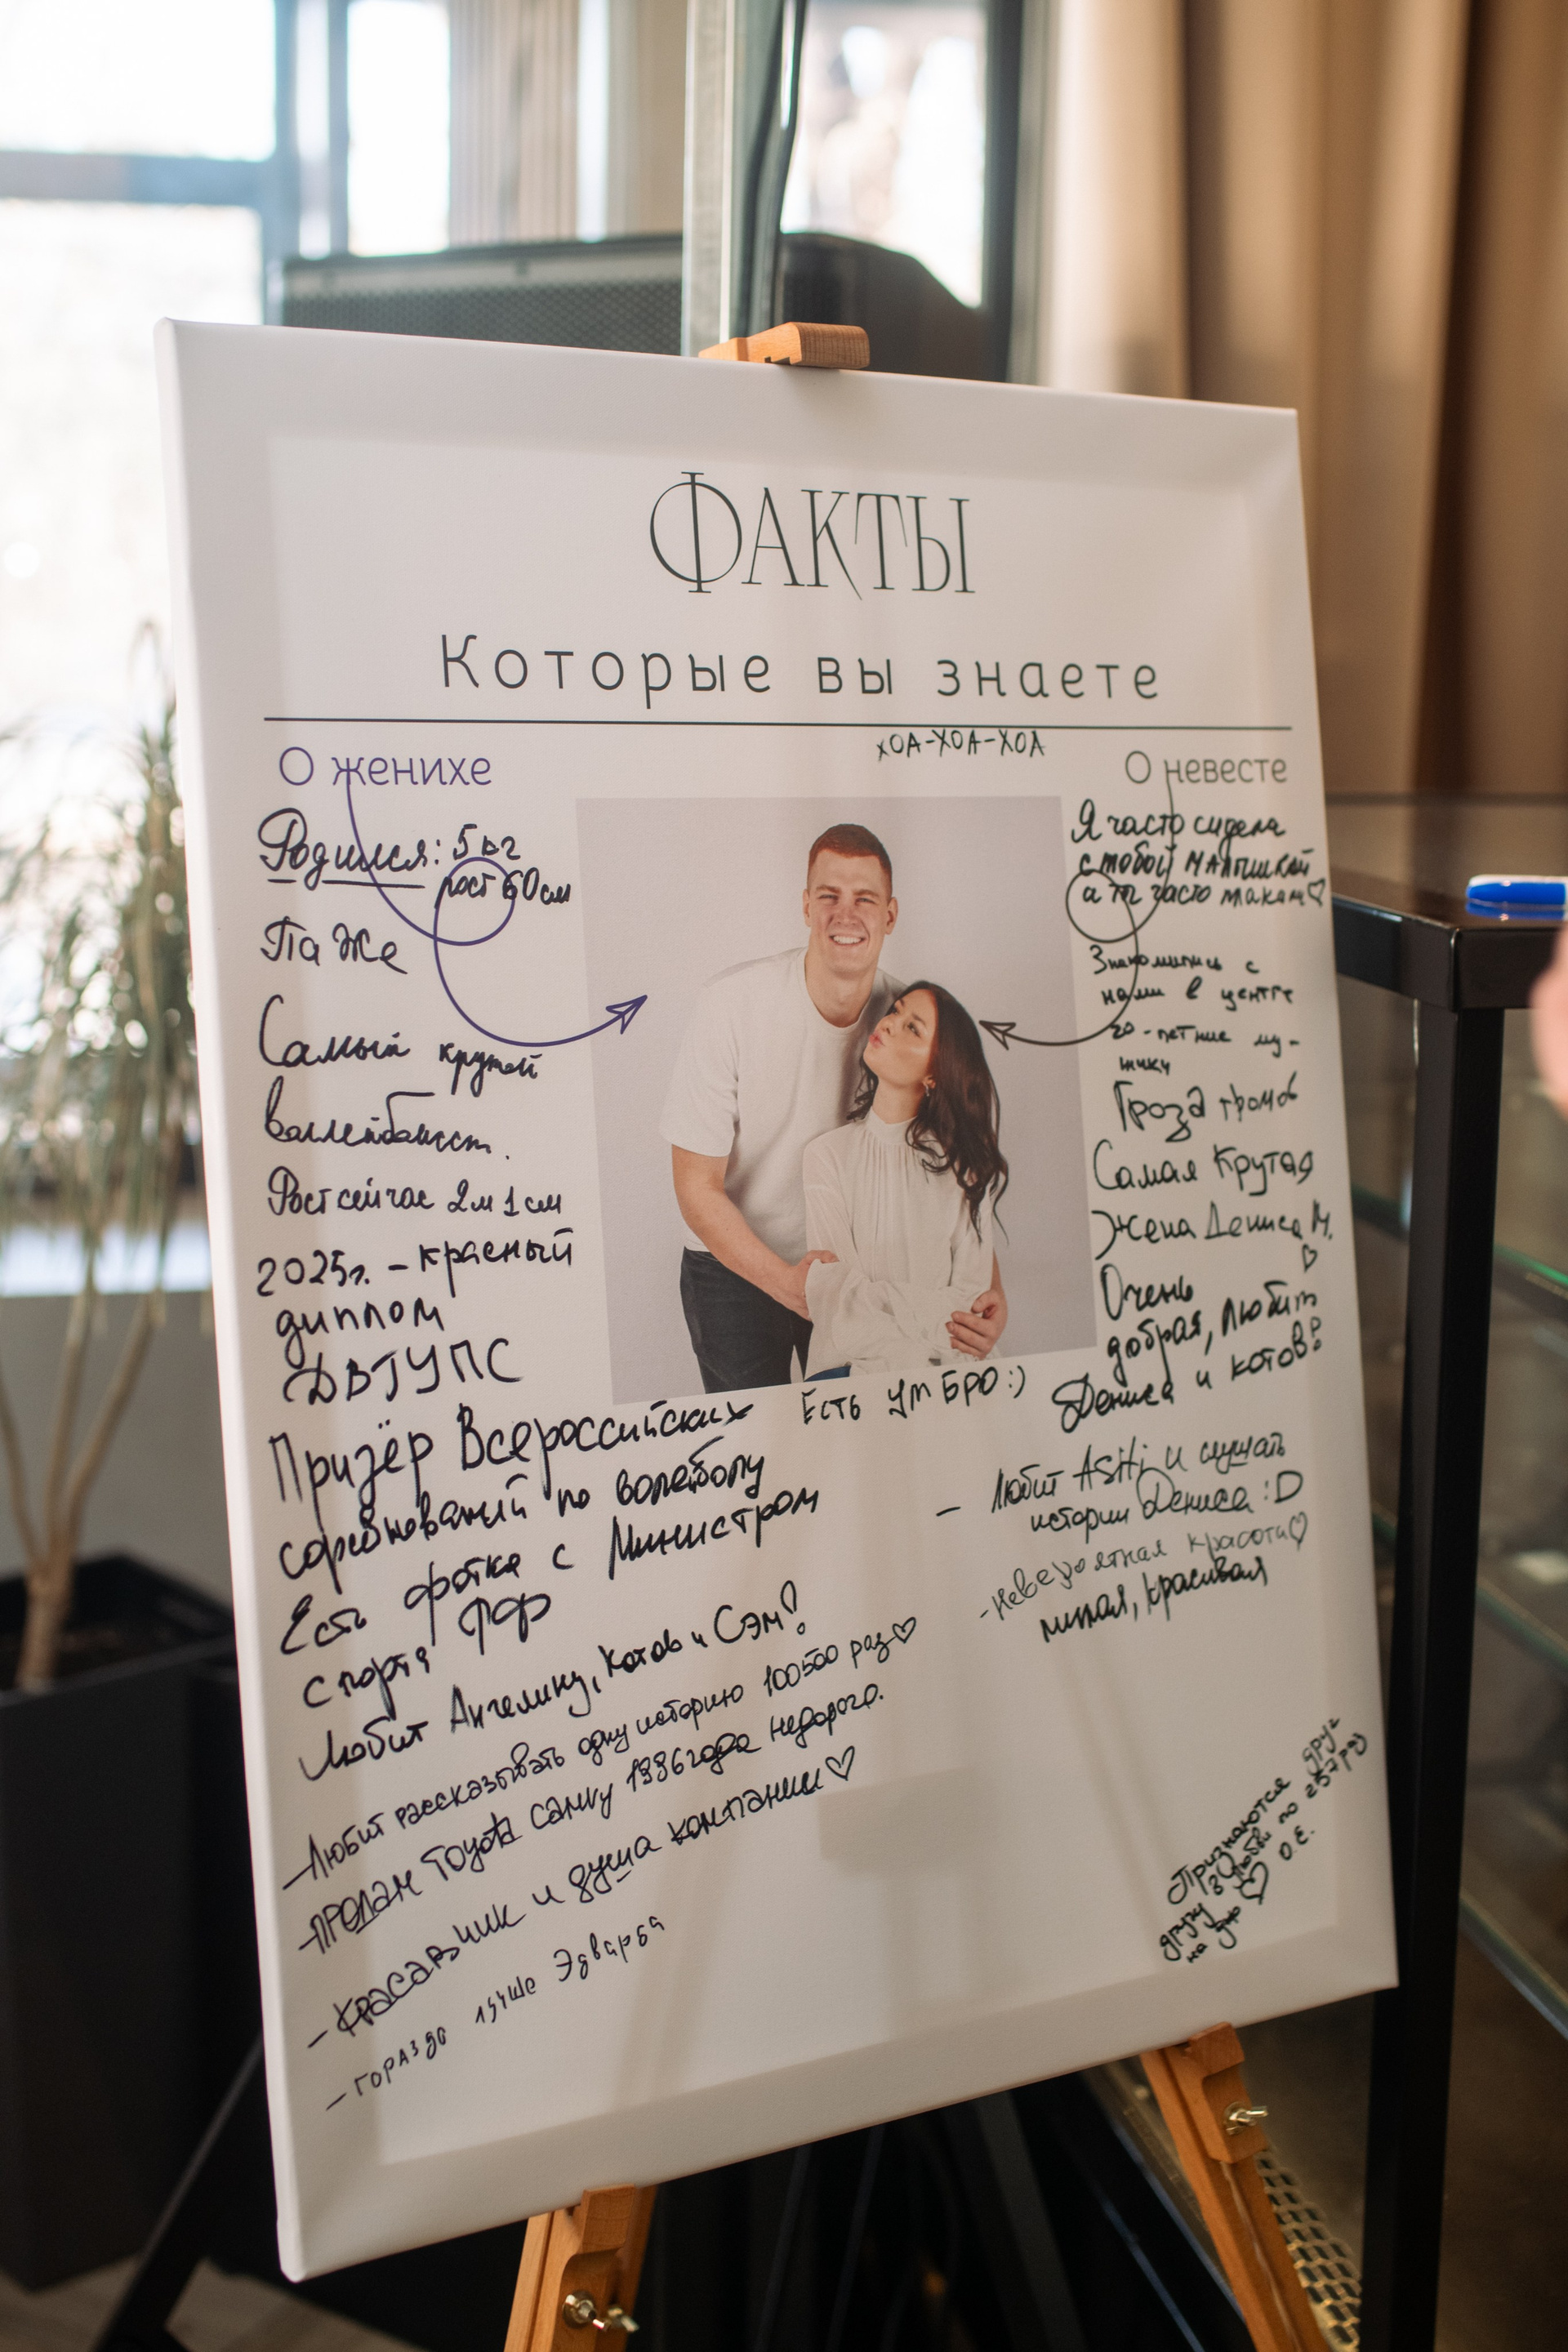 ФАКТЫ
Которые вы знаете
ХОА-ХОА-ХОА
О женихе
Родился: 5 кг
рост 60 см
Па же
Самый крутой
волейболист.
Рост сейчас 2м 1 см
2025г. - красный
диплом
ДВГУПС
Призёр Всероссийских
соревнований по волейболу
Есть фотка с Министром
спорта РФ
Любит Ангелину, котов и Сэм!
- Любит рассказывать одну историю 100500 раз♡
- ПРОДАМ Toyota CAMRY 1996 года недорого.
- КРАСАВЧИК и душа компании♡
- гораздо лучше Эдварда
О невесте
Я часто сидела
с тобой малышкой
а ты часто
♡
Знакомились с
нами в центре
20-летние му-
жики
Гроза
Самая Крутая
Жена Дениса М.
♡
Очень
добрая, любит
Дениса и котов!
Есть УМ БРО :)
- Любит ASHi и слушать
истории Дениса :D
- невероятная красотка♡
милая, красивая
Признаются друг
другу в любви по 257 раз
на дню ♡ О.Е.